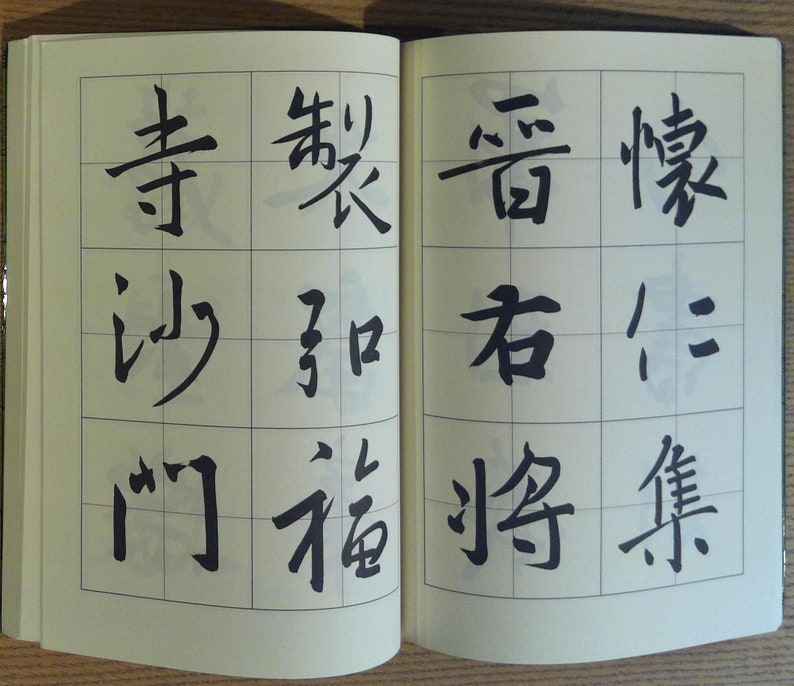 製弘福
寺沙門
懷仁集
晉右將